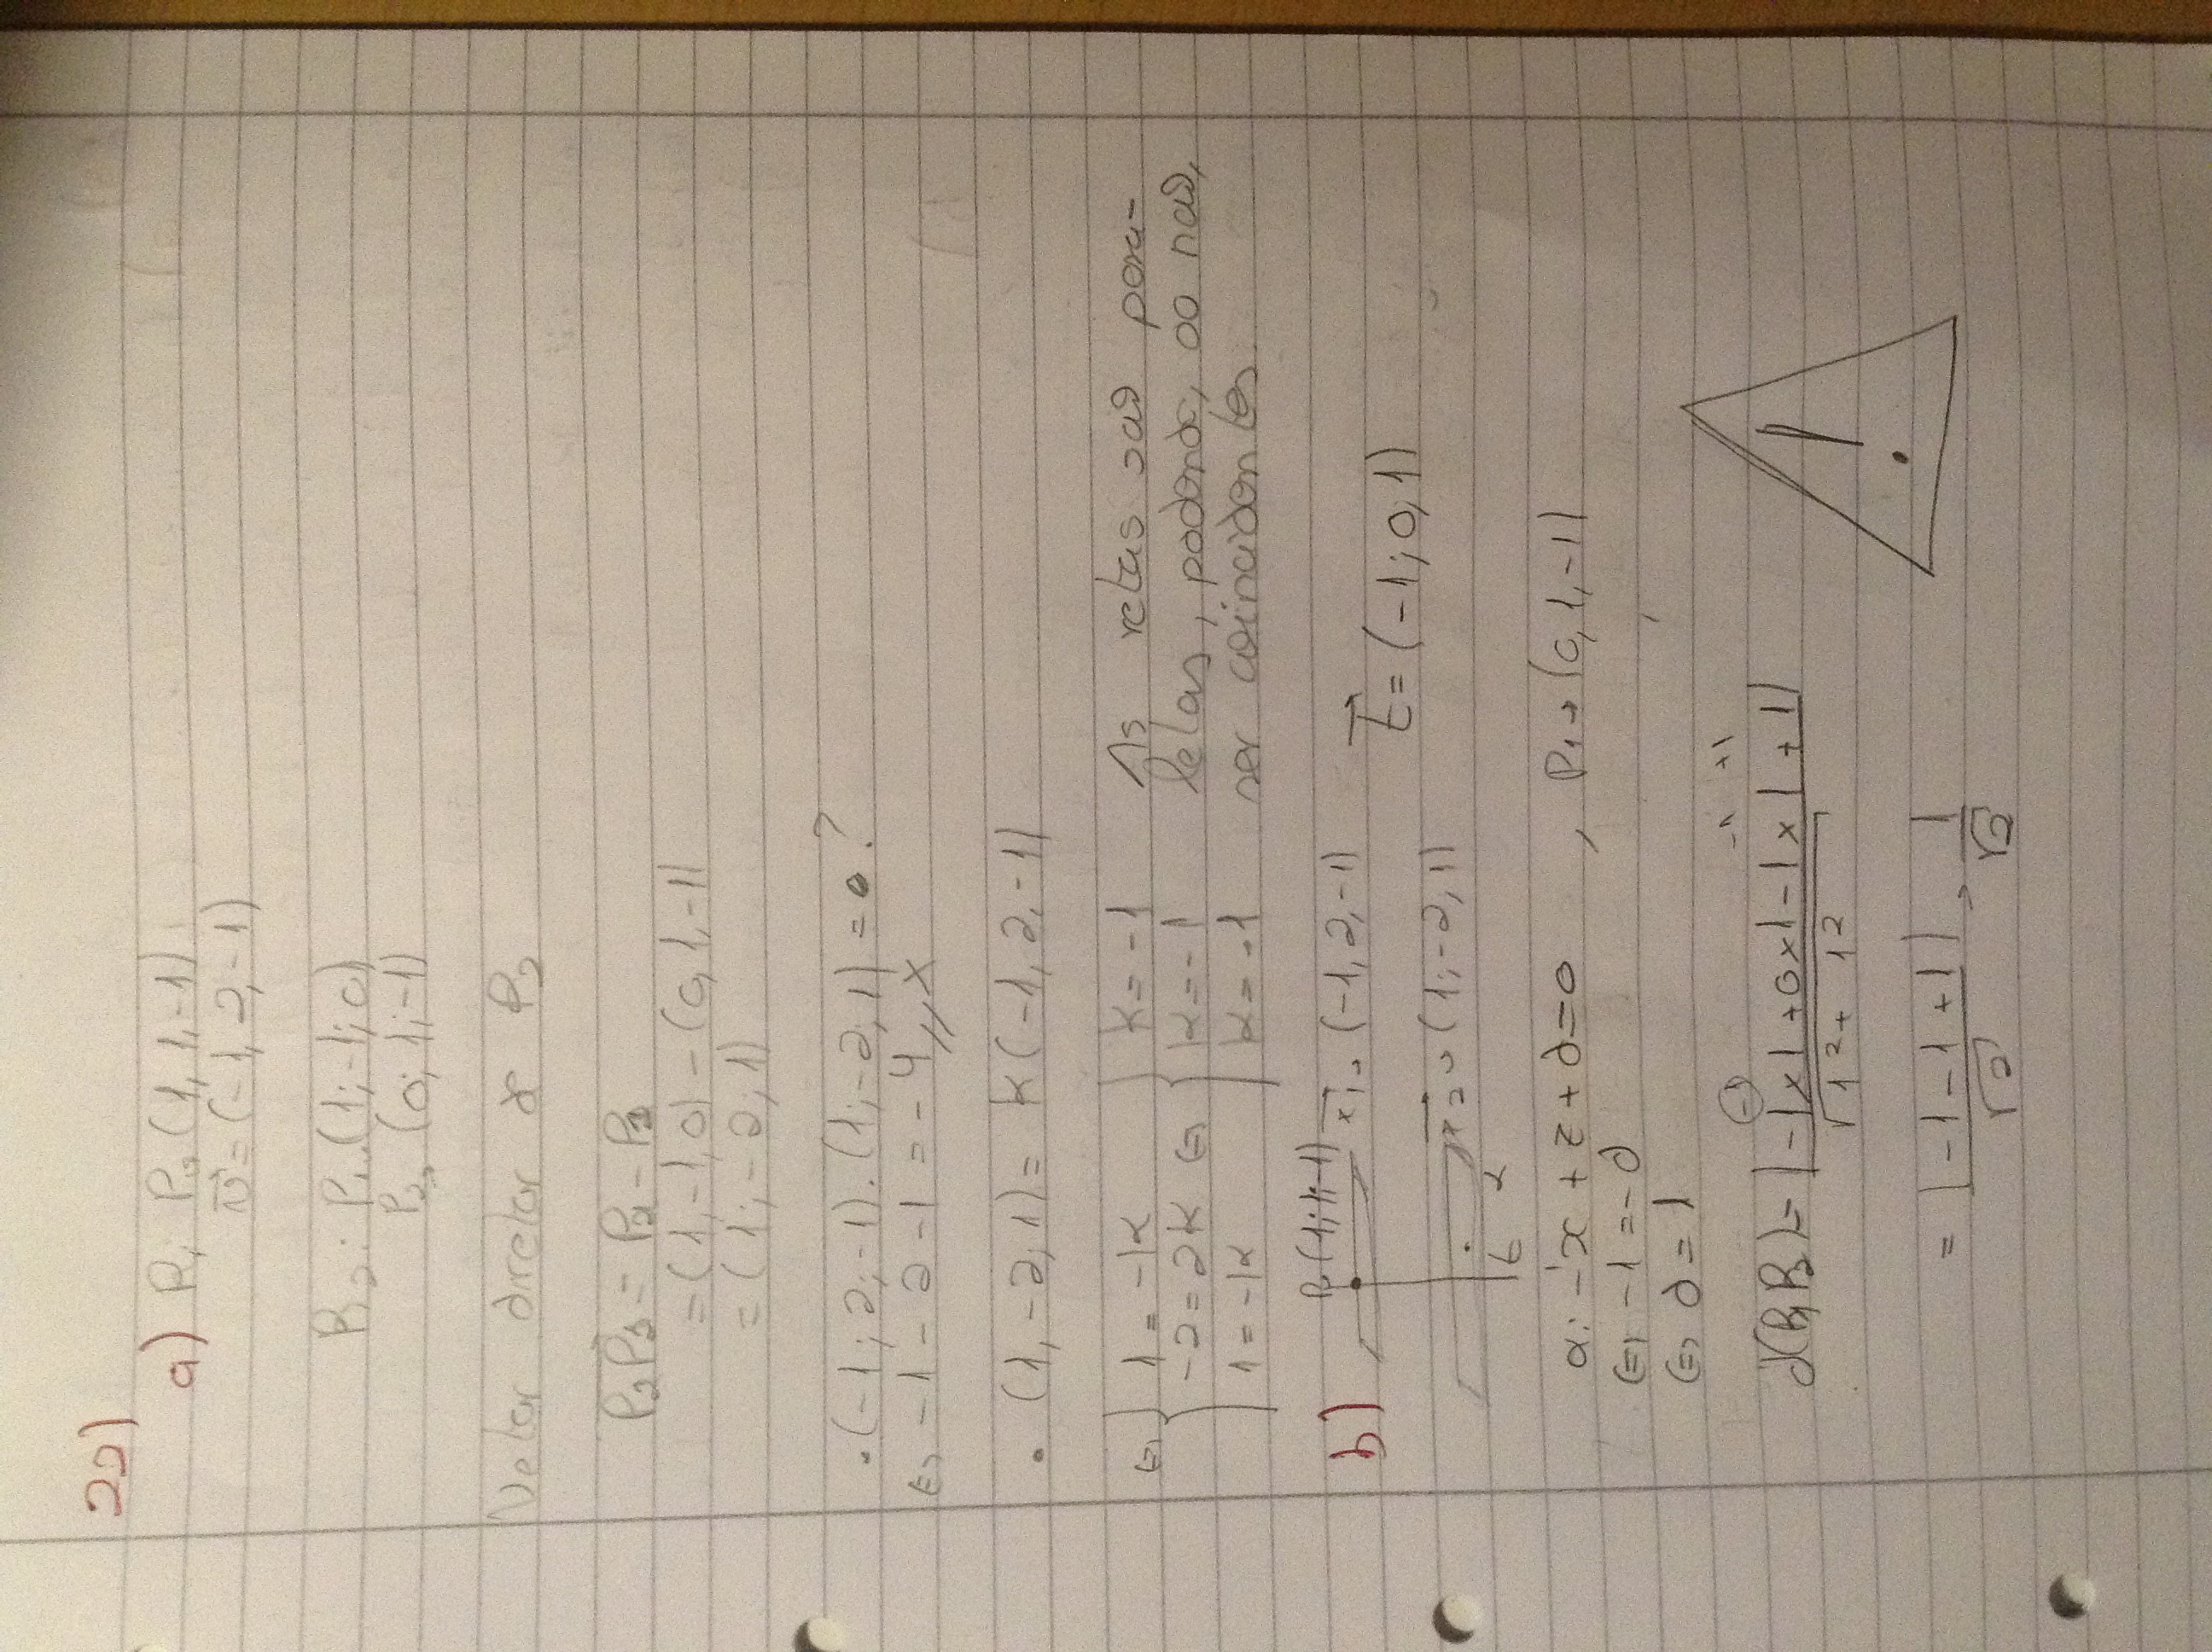 22)
a) R₁: P₀ (1, 1, -1)
v⃗ = (-1, 2, -1)
R₂: P₁→(1; -1; 0)
P₂→(0; 1; -1)
Vetor diretor de R₂
P₂P₁ = P₁ - P₂
= (1, -1, 0) - (0, 1, -1)
= (1; -2; 1)
• (-1; 2; -1) . (1; -2; 1) = 0 ?
⇔ -1 - 2 - 1 = -4 // X
• (1, -2, 1) = k (-1, 2, -1)
⇔ { 1 = -k { k = -1 As retas são para-
-2 = 2k ⇔ k = -1 lelas, podendo, ou não,
1 = -k k = -1 ser coincidentes.
b) P₀ (1; 1; -1) r⃗₁→ (-1, 2, -1)
t⃗ = (-1; 0, 1)
r⃗₂→ (1; -2, 1)
t α
α: -x + z + d = 0 , P₁→(0, 1, -1)
⇔ -1 = -d
⇔ d = 1
-1 -1 +1
d(R₁R₂) = |-1×1 + 0×1 - 1×1 + 1|
√1² + 1²
= |-1 - 1 + 1| → 1
√2 √2
!